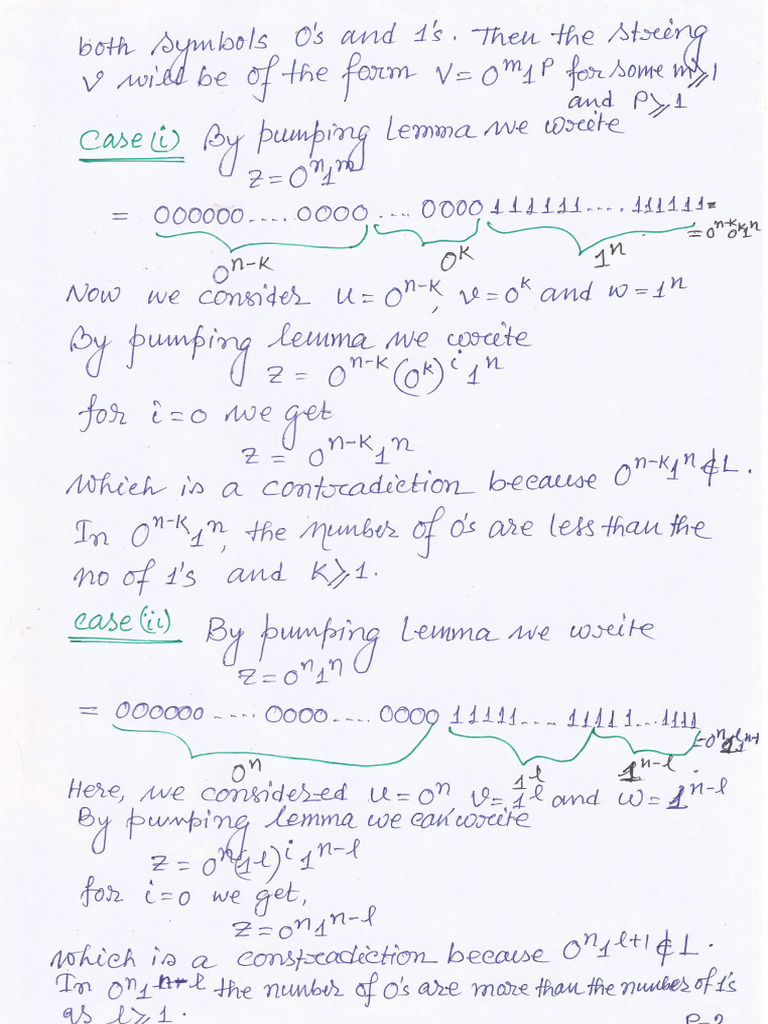 both symbols 0's and 1's. Then the string
v will be of the form v = 0^m 1^p for some m ≥ 1
and p ≥ 1
Case(i) By pumping lemma we write
z = 0^n 1^m
= 000000 .... 0000 .... 0000 111111 .... 111111 =
= 0^{n-k} 0^k 1^n
0^{n-k} 0^k 1^n
Now we consider u = 0^{n-k}, v = 0^k and w = 1^n
By pumping lemma we write
z = 0^{n-k} (0^k)^i 1^n
for i = 0 we get
z = 0^{n-k} 1^n
which is a contradiction because 0^{n-k} 1^n ∉ L.
In 0^{n-k} 1^n, the number of 0's are less than the
no of 1's and k ≥ 1.
case(ii) By pumping lemma we write
z = 0^n 1^n
= 000000 .... 0000 .... 0000 11111 .... 11111 ... 1111
0^n 1^l 1^{n-l}
Here, we considered u = 0^n, v = 1^l and w = 1^{n-l}
By pumping lemma we can write
z = 0^n (1^l)^i 1^{n-l}
for i = 0 we get,
z = 0^n 1^{n-l}
which is a contradiction because 0^n 1^{l+1} ∉ L.
In 0^n 1^{n-l} the number of 0's are more than the number of 1's
as l ≥ 1.
P-2